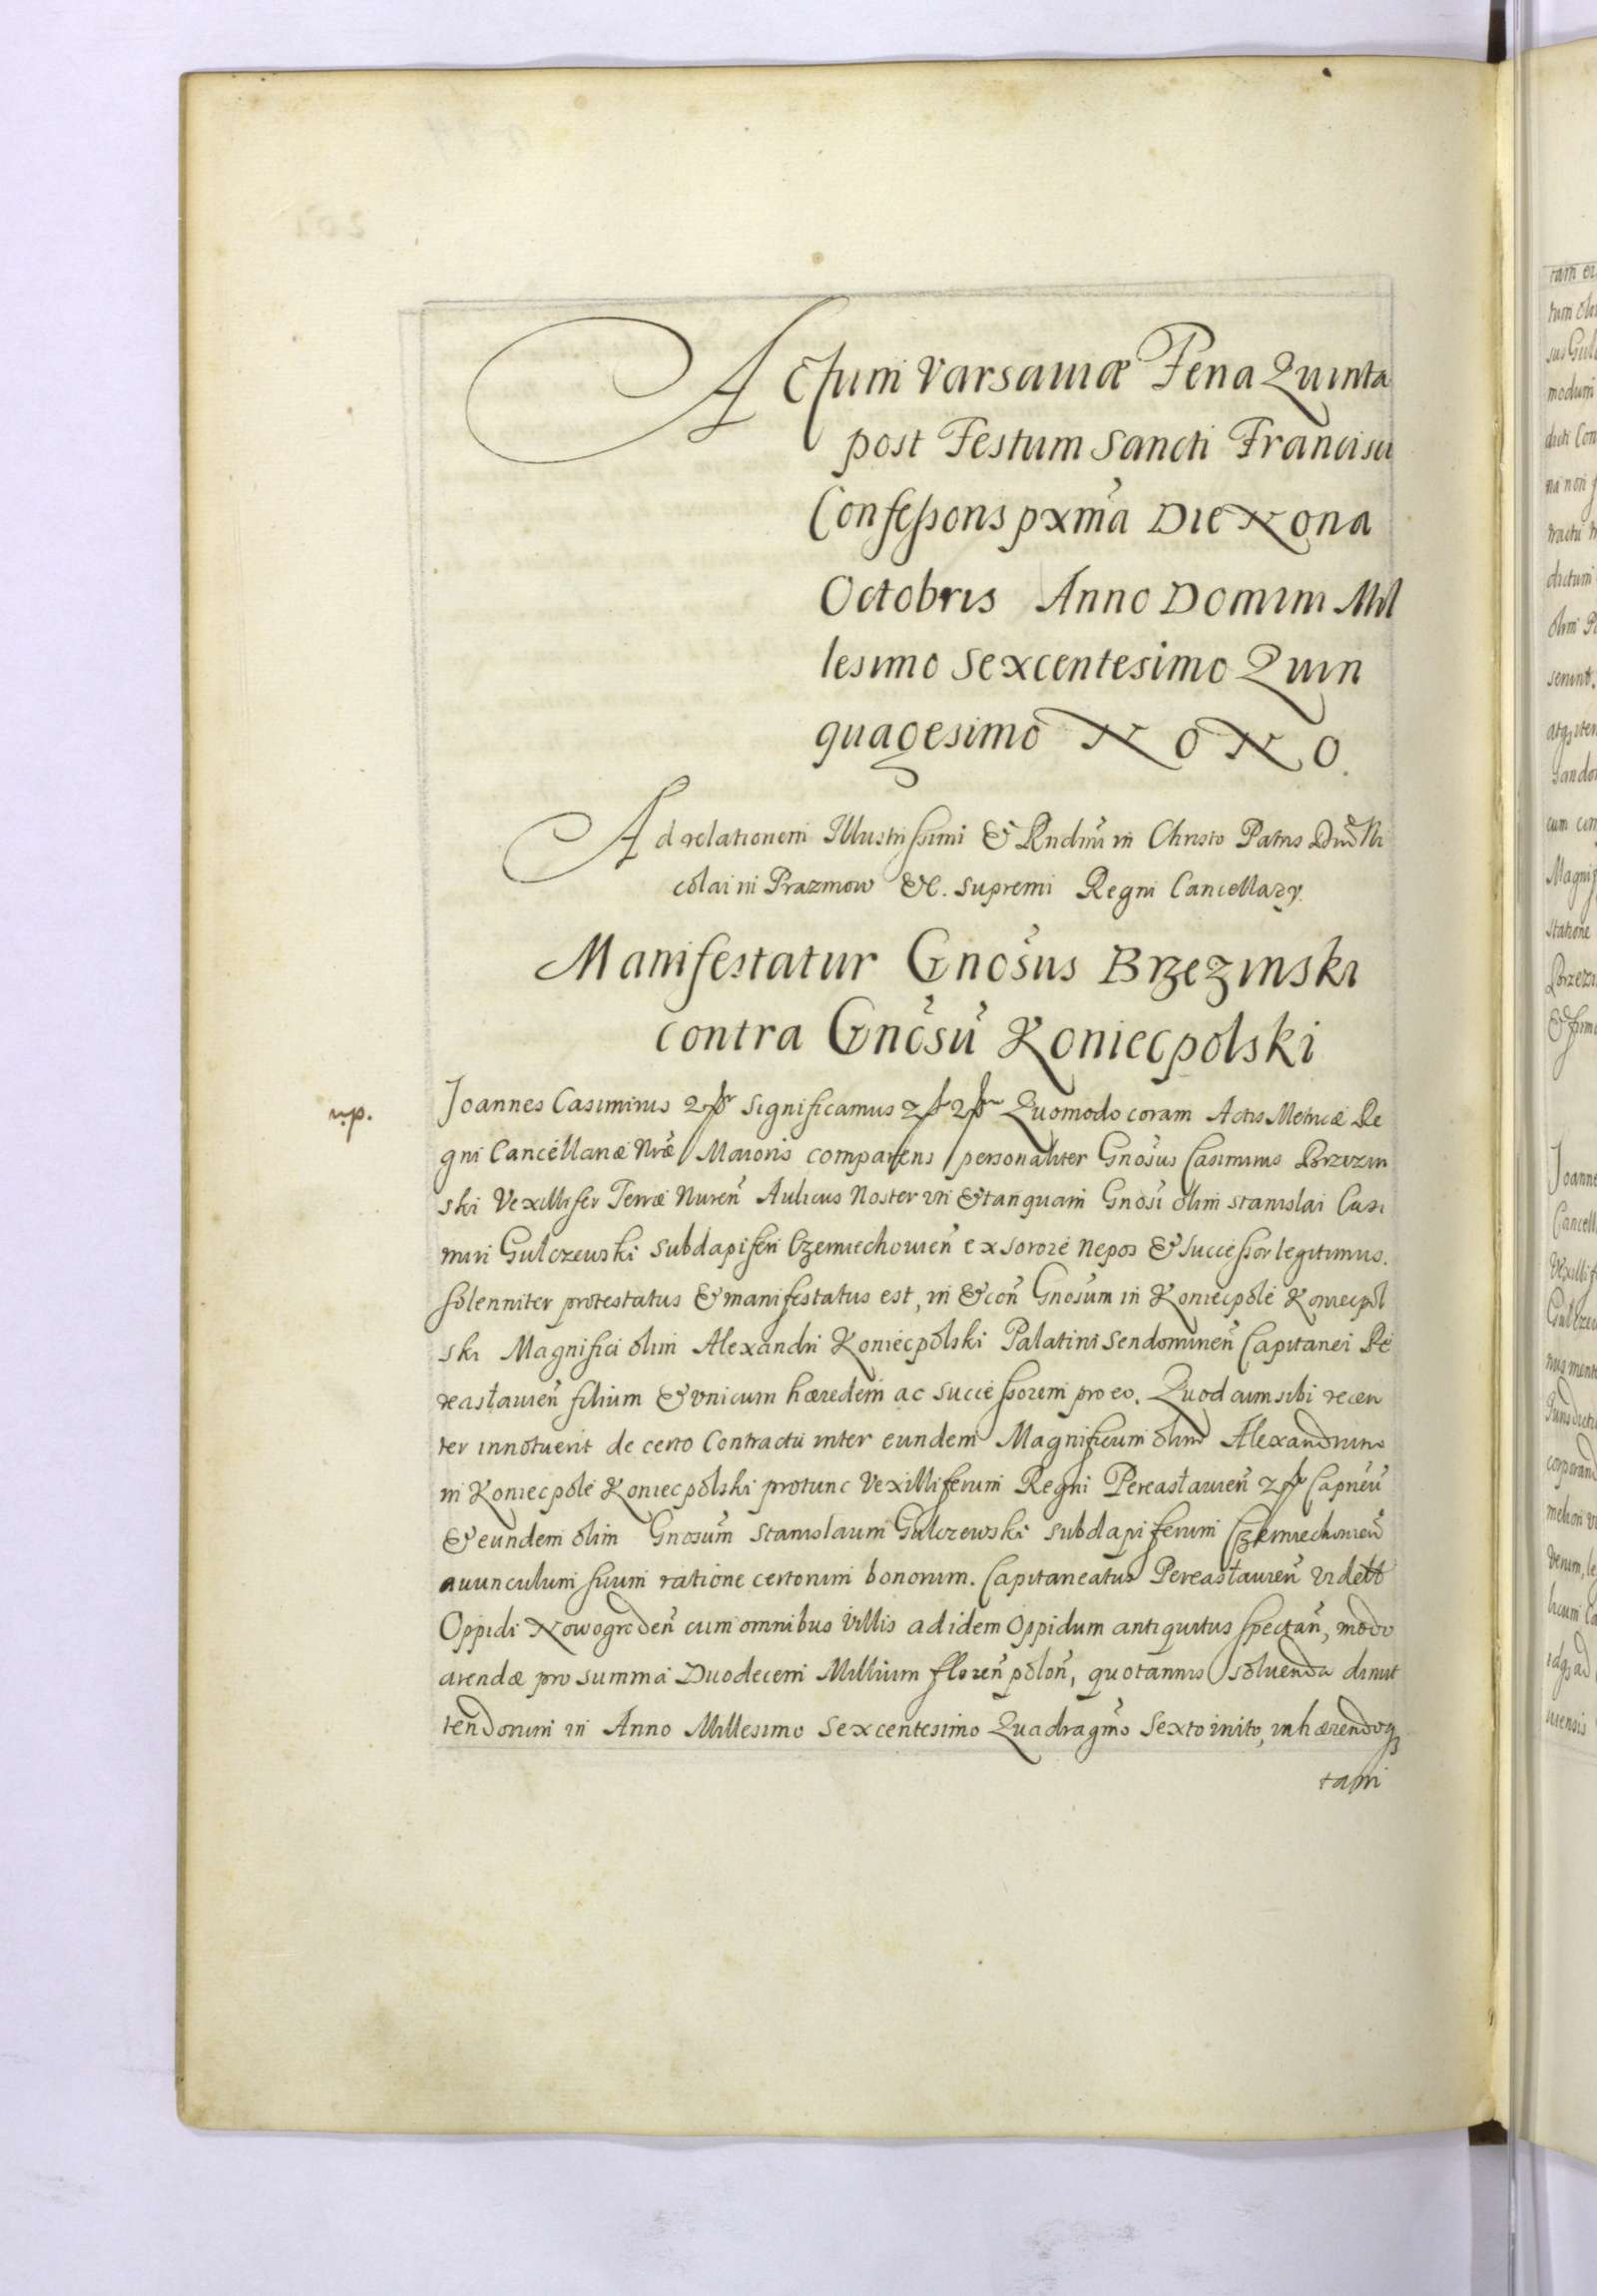 Actum Varsaviæ Feria Quinta
post Festum Sancti Francisci
Confessoris pxmã Die Nona
Octobris Anno Domini Mil
lesimo Sexcentesimo Quin
quagesimo NONO.
Ad relationem Illustrissimi & Rndmi in Christo Patris Dnĩ Ni
colai in Prazmow &c. Supremi Regni Cancellarij.
Manifestatur Gnõsus Brzezinski
contra Gnõsũ Koniecpolski
np.
Joannes Casimirus significamus Quomodo coram Actis Metricæ Re
gni Cancellariæ Nræ Maioris comparens personaliter Gnõsus Casimirus Brzezin
ski Vexillifer Terræ Nureñ Aulicus Noster uti & tanquam Gnõsi olim Stanislai Casi
miri Gulczewski Subdapiferi Czerniechovieñ ex sorore Nepos & successor legitimus.
solenniter protestatus & manifestatus est, in & coñ Gnõsum in Koniecpole Koniecpol
ski Magnifici olim Alexandri Koniecpolski Palatini Sendomirieñ Capitanei Pe
reasłavieñ filium & unicum hæredem ac successorem pro eo. Quod cum sibi recen
ter innotuerit de certo Contractu inter eundem Magnificum olim Alexandrum
in Koniecpole Koniecpolski protunc Vexilliferum Regni Pereasłavieñ Capneũ
& eundem olim Gnosum Stanislaum Gulczewski Subdapiferum Czerniechovieñ
avunculum suum ratione certorum bonorum. Capitaneatus Pereasłavieñ vidett
Oppidi Nowogrodeñ cum omnibus Villis ad idem Oppidum antiquitus spectañ, modo
arendæ pro summa Duodecem Millium floreñ poloñ, quotannis solvenda dimit
tendorum in Anno Millesimo Sexcentesimo Quadragmo Sexto inito, inhærendoq3
tam